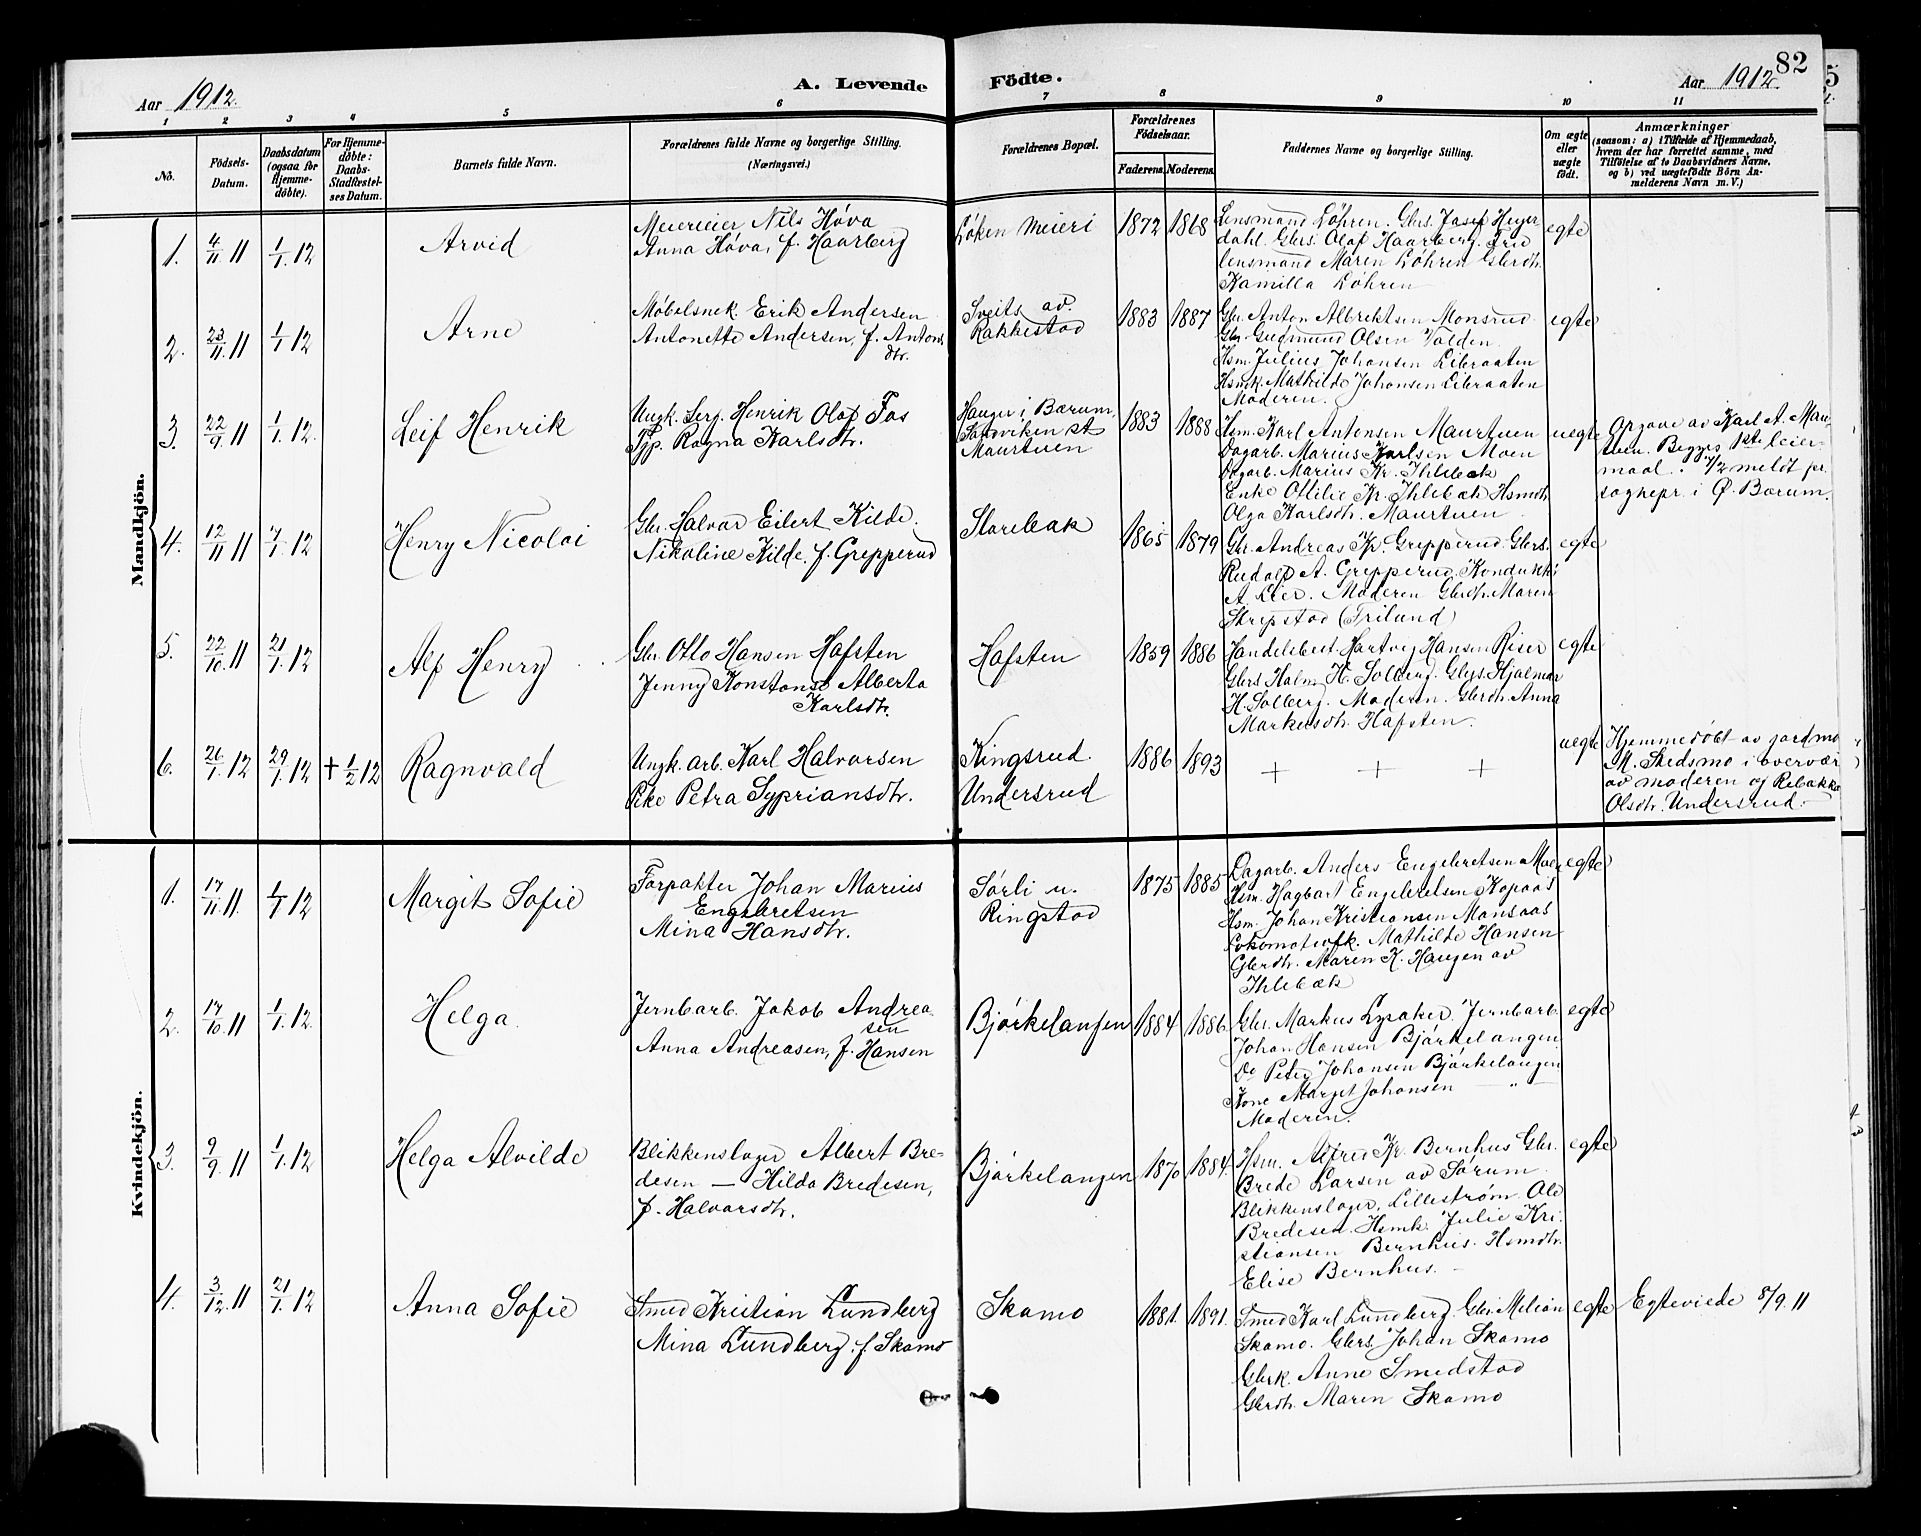 82
Aar 1912.
A. Levende
Födte.
Aar 1912
1 2 3 4 5 6 7 8 9 10 11
No.
Födsels-
Datum.
Daabsdatum
(ogsaa for
Hjemme-
döbte).
For Hjemme-
döbte:
Daabs-
Stadfæstel-
ses Datum.
Barnets fulde Navn.
Forældrenes fulde Navne og borgerlige Stilling.
(Næringsvei.)
Forældrenes Bopæl.
Forældrenes
Födselsaar.
Faderens. Moderens.
Faddernes Navne og borgerlige Stilling.
Om ægte
eller
uægte
födt.
Anmærkninger
(saasom: a) i Tilfælde af Hjemmedaab,
hvem der har forrettet samme, med
Tilföielse af to Daabsvidners Navne,
og b) ved uægtefödte Börn An-
melderens Navn m. V.)
Mandkjön.
1. 4/11 11 1/1 12 Arvid
Meiereier Nils Høva
Anna Høva, f. Haarberg
Løken meieri 1872 1868
Lensmand Løhren. Gbrs. Josef Heyer
dahl. Gbrs. Olaf Haarberg. Frie
lensmand Maren Løhren Gbrdtr.
Kamilla Løhren
egte
2. 23/11 11 1/1 12 Arne
Møbelsnek. Erik Andersen
Antonette Andersen, f. Antons
dtr.
Sveits av.
Rakkestad
1883 1887
Gbr. Anton Albrektsen Monsrud
Gbr. Gudmund Olsen Tolden
Hsm. Julius Johansen Libraaten
Hsmk. Mathilde Johansen Libraaten
Moderen.
egte
3. 22/9 11 1/1 12. Leif Henrik
Ungk. Serg. Henrik Olaf Fos
Tjp. Ragna Karlsdtr.
Hauger i Bærum,
Sandviken st
Maurtuen
1883 1888
Hsm. Karl Antonsen Maurtuen
Dagarb. Marius Karlsen Moen
Dagarb. Marius Kr. Ihlebæk
Enke Ottilie Kr. Ihlebæk Hsmdtr.
Olga Karlsdtr. Maurtuen
uegte
Opgave av Karl A. Maur
tuen. Begges 1ste leier-
maal. 1/2 meldt fr.
sognepr. i Ø. Bærum.
4. 12/11 11 7/1 12 Henry Nicolai
Gbr. Halvar Eilert Kilde.
Nikoline Kilde. f. Grepperud
Storebak 1865 1879
Gbr. Andreas Kr. Grepperud. Gbrs.
Rudolf A. Grepperud. Kondukt:
A. Lier. Moderen Gbrdtr. Maren
Skrepstad (Friland)
egte
5. 22/10 11 21/1 12 Alf Henry
Gbr. Otto Hansen Hafsten
Jenny Konstanse Alberta
Karlsdtr.
Hafsten 1859 1886
Handelsbest. Hartvig Hansen Riser
Gbrs Halm. H. Solberg. Gbrs. Hjalmar
H. Solberg. Moderen. Gbrdtr. Anna
Markusdtr. Hafsten.
egte
6. 26/1 12 29/1 12 + 1/2 12 Ragnvald
Ungk. arb. Karl Halvorsen
Pike Petra Sypriansdtr.
Kingsrud.
Undersrud
1886 1893
+ + +
uegte
Hjemmedøbt av jordmo
M. Skedsmo i overvær
av moderen og Rebakka
Olsdtr. Undersrud.
Kvindekjön.
1. 17/11 11. 1/1 12 Margit Sofie
Forpakter Johan Marius
Engebretsen
Mina Hansdtr.
Sørli u.
Ringstad
1875 1885
Dagarb. Anders Engebretsen Moen
Hsm. Hagbart Engebretsen Kopaas
Hsm. Johan Kristiansen Monsaas
Lokomotivfk. Mathilde Hansen
Gbrdtr. Maren K. Haugen av
Ihlebæk
egte
2. 17/10 11 1/1 12. Helga
Jernbarb. Jakob Andrea-
sen
Anna Andreasen, f. Hansen
Bjørkelangen 1884 1886
Gbr. Markus Lysaker. Jernbarb.
Johan Hansen Bjørkelangen
Do Peter Johansen Bjørkelangen
Kone Margit Johansen — " —
Moderen.
egte
3. 9/9 11 1/1 12 Helga Alvilde
Blikkenslager Albert Bre-
desen — Hilda Bredesen,
f. Halvorsdtr.
Bjørkelangen 1870 1884.
Hsm. Alfred Kr. Bernhus Gbr.
Brede Larsen av Sørum
Blikkenslager, Lillestrøm Ole
Bredesen. Hsmk. Julie Kri-
stiansen Bernhus. Hsmdtr.
Elise Bernhus.
egte
4. 3/12 11 21/1 12 Anna Sofie
Smed Kristian Lundberg
Mina Lundberg. f. Skamo
Skamo 1881. 1891.
Smed Karl Lundberg. Gbr. Melian
Skamo. Gbrs. Johan Skamo
Gbrk. Anne Smedstad
Gbrdtr. Maren Skamo
egte
Egteviede 8/9 11